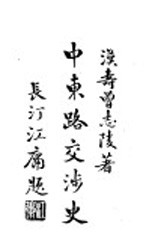 漢壽曾志陵著
中東路交涉史
長汀江庸題